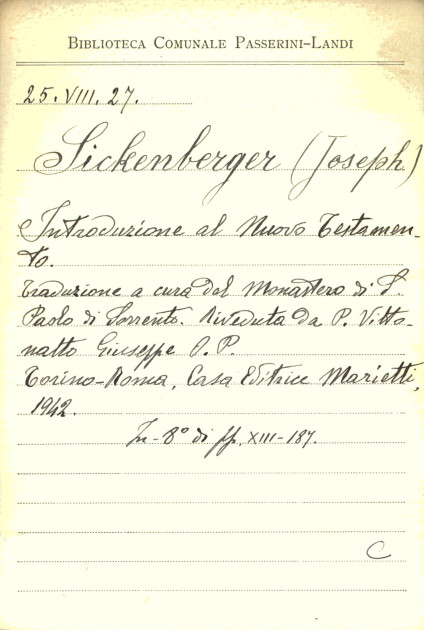 BIBLIOTECA COMUNALE PASSERINI-LANDI
25. VIII. 27.
Sickenberger (Joseph)
Introduzione al Nuovo Testamen-
to.
Traduzione a cura del Monastero di S.
Paolo di Sorrento. Riveduta da P. Vitto-
natto Giuseppe O. P.
Torino-Roma, Casa Editrice Marietti,
1942.
In-8° di pp. XIII-187.
C